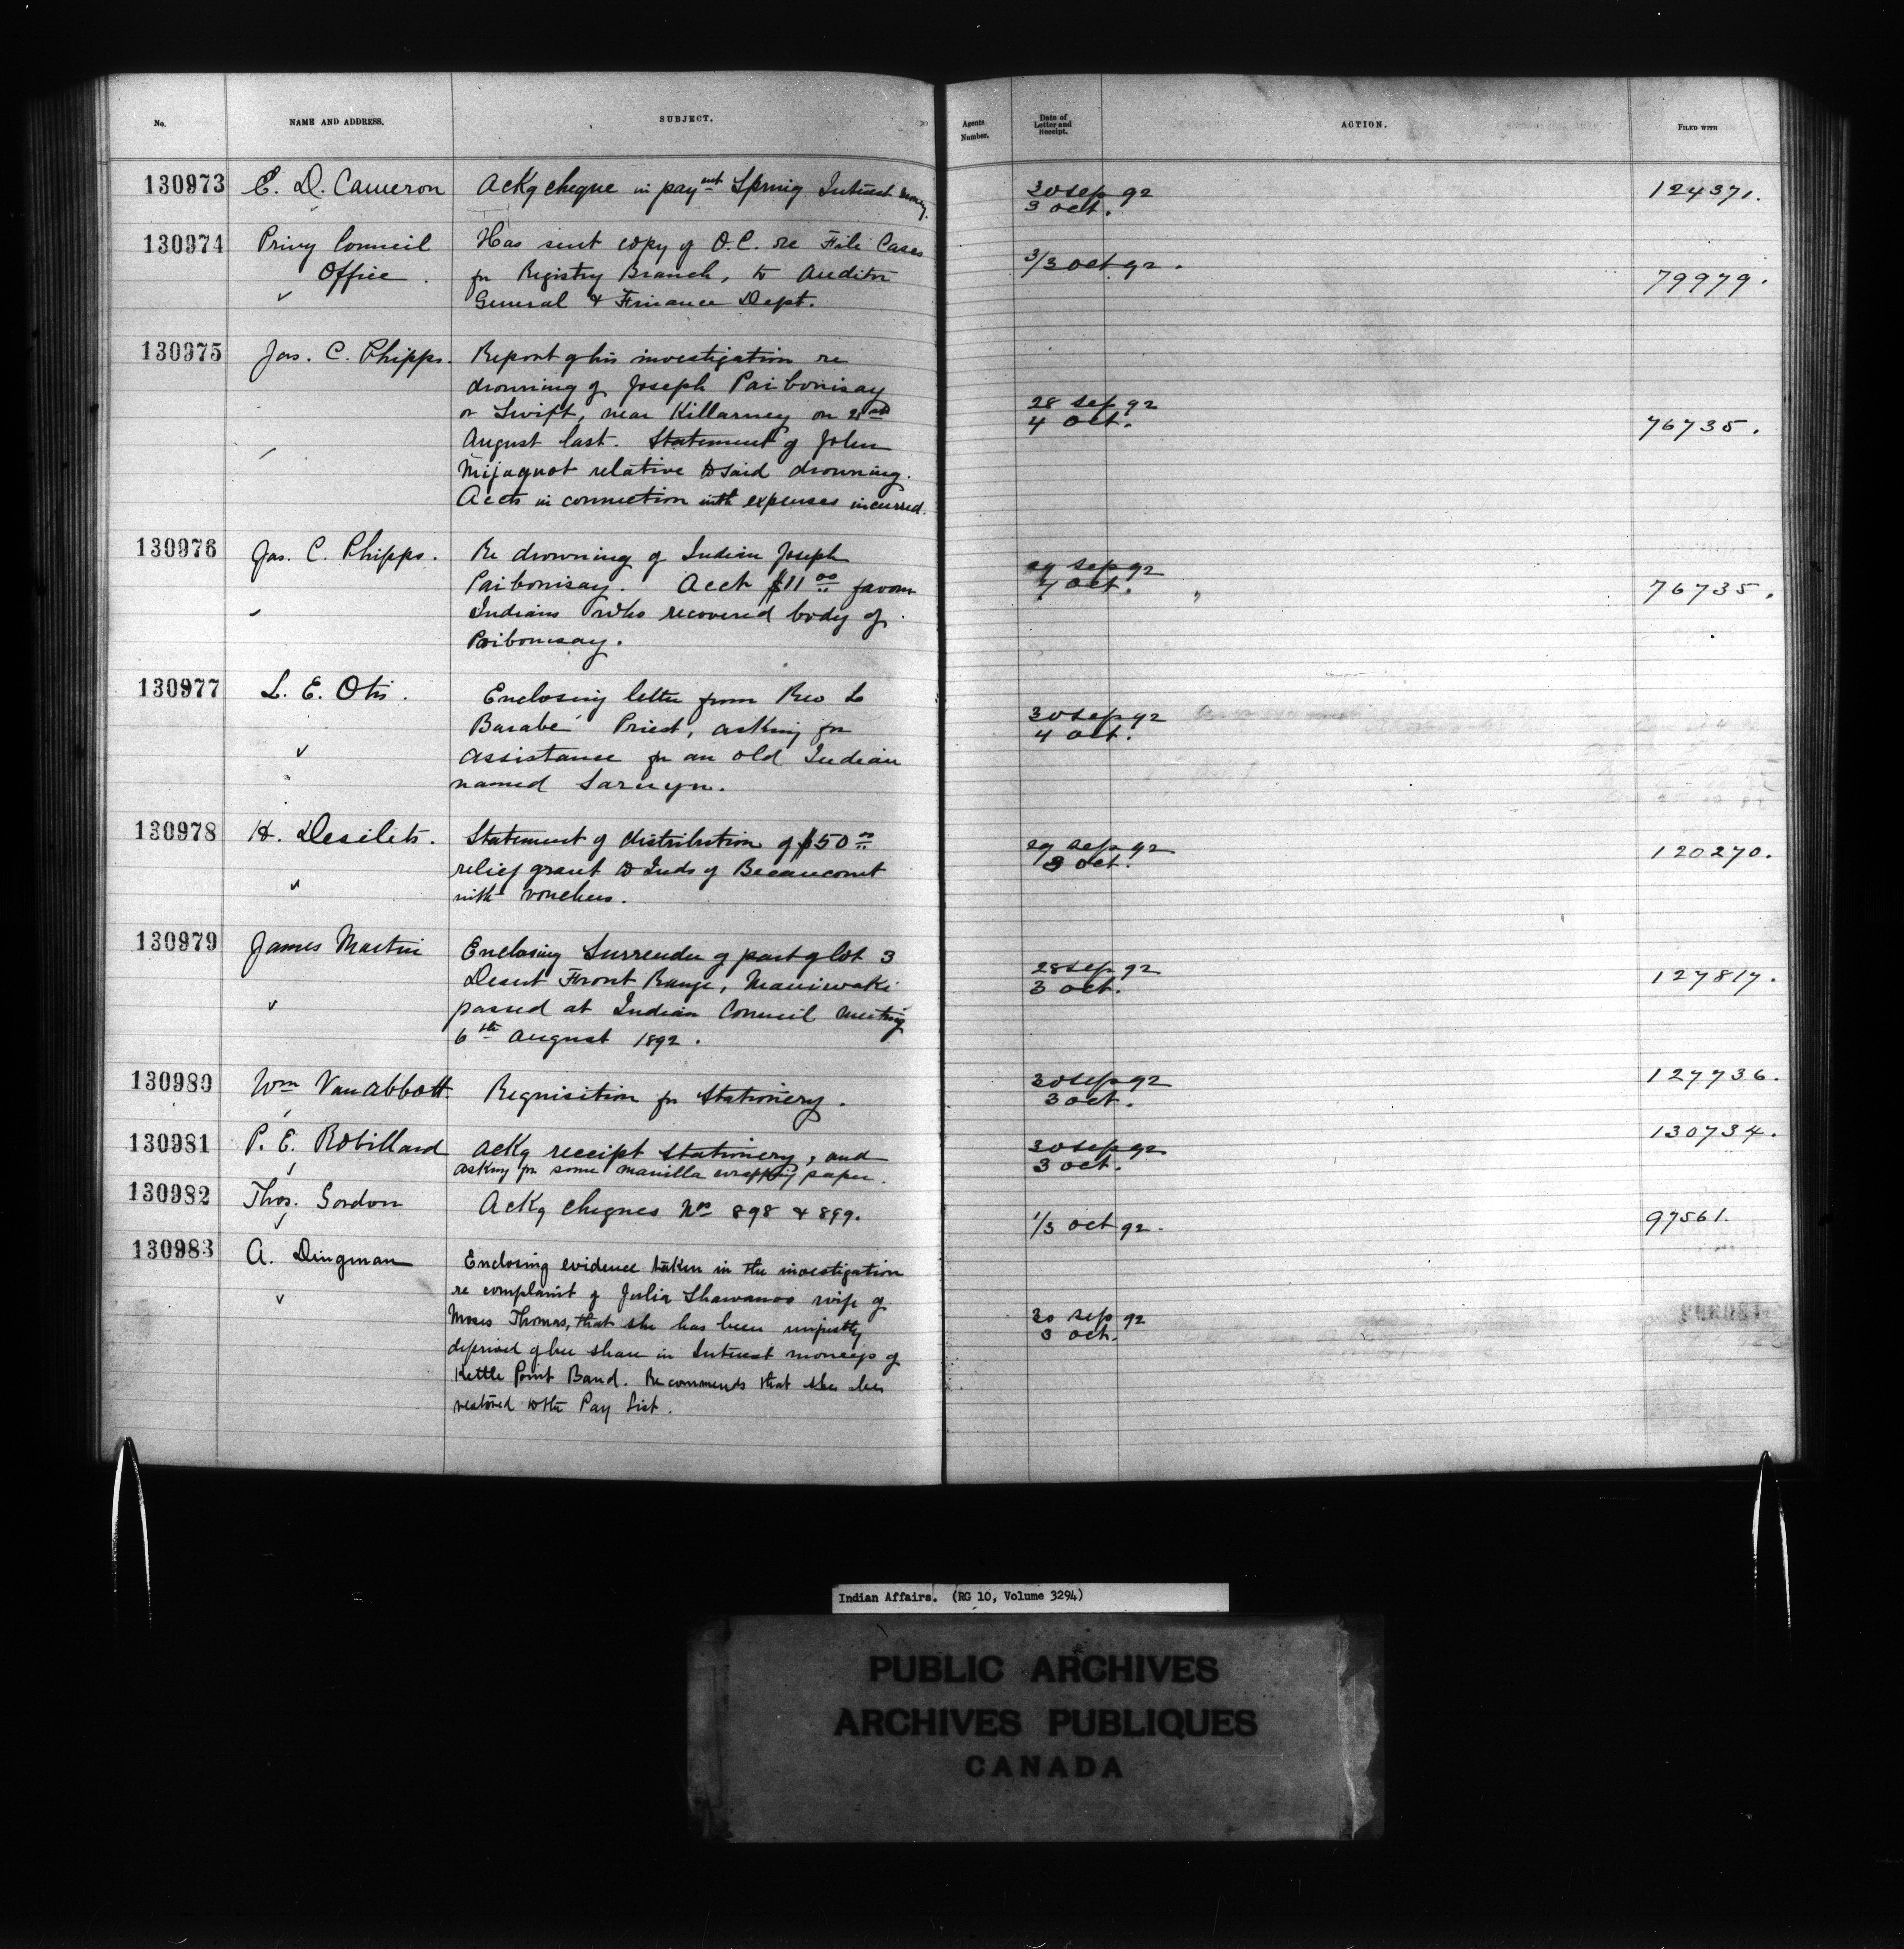 No.
NAME AND ADDRESS.
SUBJECT.
Agents Number.
Date of Letter and Receipt.
ACTION.
FILED WITH
130973 E. D. Cameron Ackg cheque in paymt Spring Interest money. 30 Sep 92 124371.
3 Oct.
130974 Privy Council Has sent copy of O.C. re File Cases 3/3 Oct 92. 79979.
Office. for Registry Branch, to Auditor
General & Finance Dept.
130975 Jas. C. Phipps. Report of his investigation re 28 Sep 92 76735.
drowning of Joseph Paibonisay 4 Oct.
or Swift, near Killarney on
August last. Statement of John
Mijaquot relative to said drowning.
Accts in connection with expenses incurred.
130976 Jas. C. Phipps. Re drowning of Indian Joseph 29 Sep 92 76735.
Paibonisay. Acct $11 00 favour 4 Oct.
Indians who recovered body of
Paibonisay.
130977 L. E. Otis. Enclosing letter from Rev L 30 Sep 92
Barabé Priest, asking for 4 Oct.
assistance for an old Indian
named
130978 H. Desilets. Statement of distribution of $50 00 29 Sep 92 120270.
relief grant to Inds of Becancourt 3 Oct.
with vouchers.
130979 James Martin Enclosing Surrender of part of lot 3 28 Sep 92 127817.
Desert Front Range, Maniwaki 3 Oct.
passed at Indian Council meeting
6th August 1892.
130980 Wm Van Abbott. Requisition for Stationery. 30 Sep 92 127736.
3 Oct.
130981 P. E. Robillard Ackg receipt Stationery, and 30 Sep 92 130734.
asking for some manilla wrapping paper. 3 Oct.
130982 Thos. Gordon Ackg cheques Nos 898 & 899. 1/3 Oct 92. 97561.
130983 A. Dingman Enclosing evidence taken in the investigation 30 Sep 92
re complaint of Julia Shawanoo wife of 3 Oct.
Moses Thomas, that she has been unjustly
deprived of her share in Interest moneys of
Kettle Point Band. Recommends that she be
restored to the Pay List.
Indian Affairs. (RG 10, Volume 3294)
PUBLIC ARCHIVES
ARCHIVES PUBLIQUES
CANADA